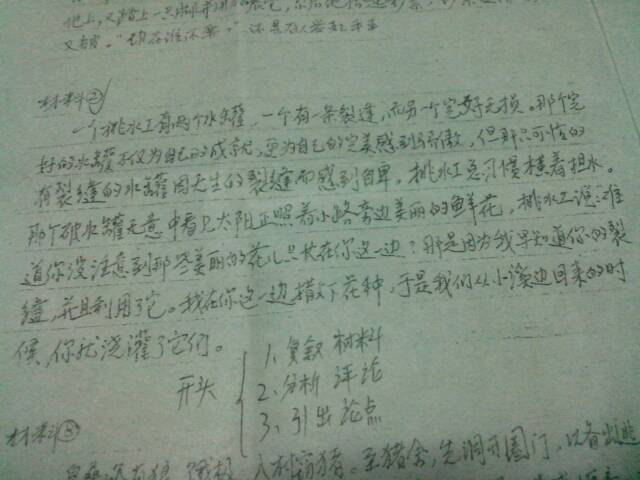 地上，又踏上一只脚
又有言。"现在谁还要" 还是有人举起手来
材料②
一个挑水工有两个水罐，一个有一条裂缝，而另一个完好无损。那个完
好的水罐不仅为自己的成就，更为自己的完美感到骄傲，但那只可怜的
有裂缝的水罐因天生的裂缝而感到自卑。挑水工总习惯横着担水。
那个破水罐无意中看见太阳正照着小路旁边美丽的鲜花，挑水工说：难
道你没注意到那些美丽的花儿只长在你这一边？那是因为我早知道你的裂
缝，并且利用了它。我在你这一边撒下花种，于是我们从小溪边回来的时
候，你就浇灌了它们。
开头
1、复叙材料
2、分析 评论
3、引出论点
材料③
有狼 入村窃猪。至猪舍，先洞开圈门，以备出逃